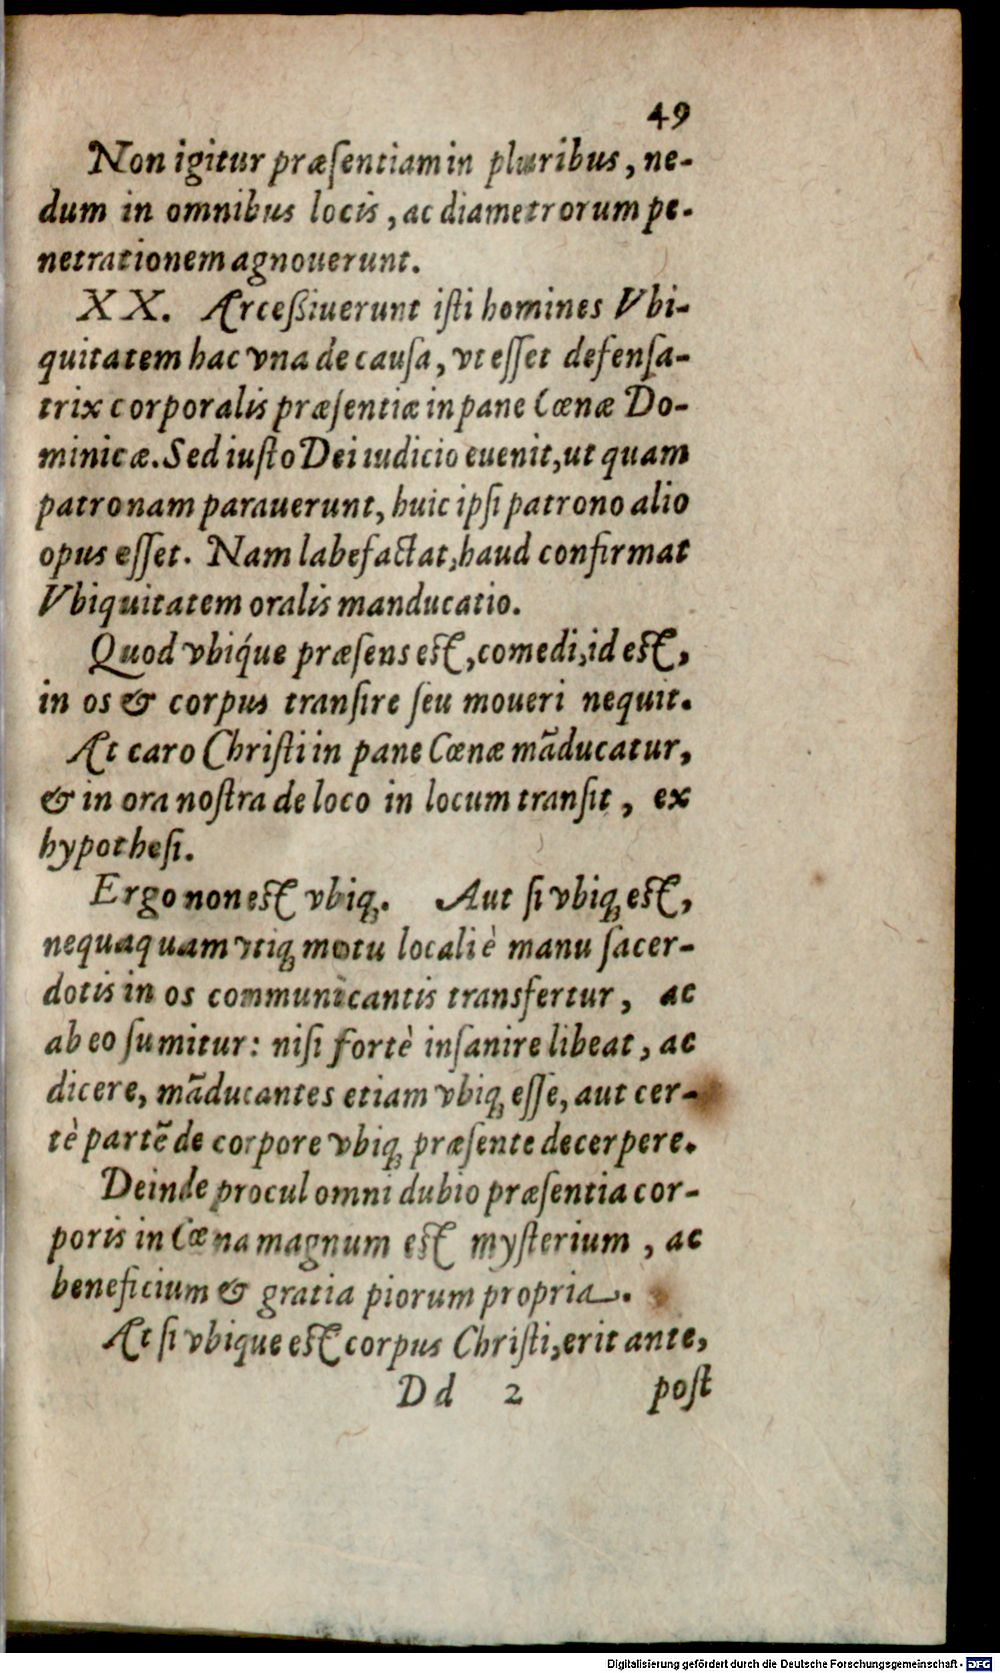 49
Non igitur præſentiam in pluribus, ne-
dum in omnibus locis, ac diametrorum pe-
netrationem agnouerunt.
XX. Arceßiuerunt iſti homines Vbi-
quitatem hac vna de cauſa, vt eſſet defenſa-
trix corporalis præſentiæ in pane Cœnæ Do-
minicæ. Sed iuſto Dei iudicio euenit, ut quam
patronam parauerunt, huic ipſi patrono alio
opus eſſet. Nam labefactat, haud confirmat
Vbiquitatem oralis manducatio.
Quod vbiq́ue præſens eſt, comedi, id eſt,
in os & corpus tranſire ſeu moueri nequit.
At caro Chriſti in pane Cœnæ mãducatur,
& in ora noſtra de loco in locum tranſit, ex
hypotheſi.
Ergo non eſt vbiq;. Aut ſi vbiq; eſt,
nequaquam vtiq; motu locali è manu ſacer-
dotis in os communicantis transfertur, ac
ab eo ſumitur: niſi fortè inſanire libeat, ac
dicere, mãducantes etiam vbiq; eſſe, aut cer-
tè partẽ de corpore vbiq; præſente decerpere.
Deinde procul omni dubio præſentia cor-
poris in Cœna magnum eſt myſterium, ac
beneficium & gratia piorum propria.
At ſi vbique eſt corpus Chriſti, erit ante,
Dd 2 poſt
Digitalisierung gefördert durch die Deutsche Forschungsgemeinschaft - DFG